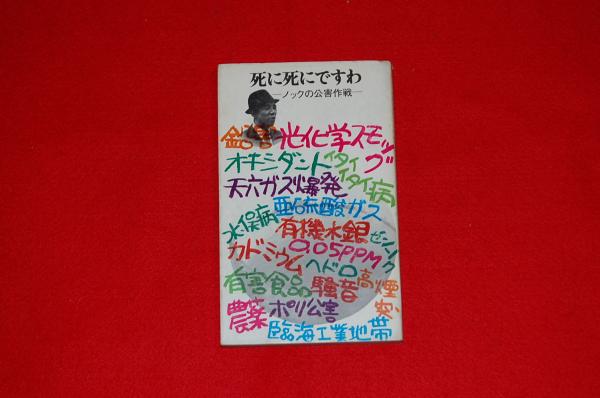 死に死にですわ
―ノックの公害作戦―
鉛害 光化学スモッグ
オキシダント イタイイタイ病
天六ガス爆発
亜硫酸ガス
水俣病 有機水銀 ゼンソク
カドミウム 0.05PPM
ヘドロ
有害食品 騒音 高煙突
農薬 ポリ公害
臨海工業地帯